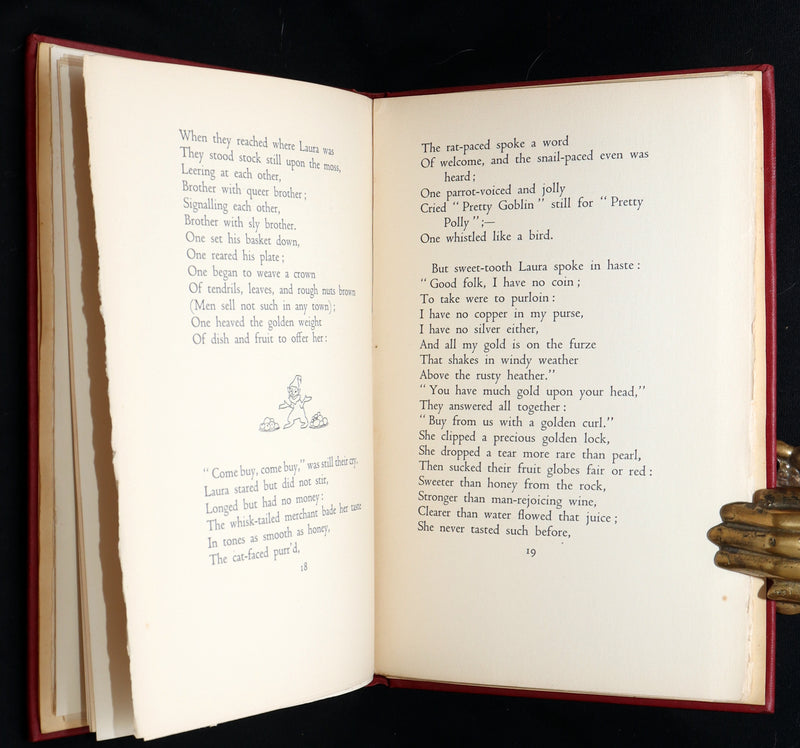 When they reached where Laura was
They stood stock still upon the moss,
Leering at each other,
Brother with queer brother;
Signalling each other,
Brother with sly brother.
One set his basket down,
One reared his plate;
One began to weave a crown
Of tendrils, leaves, and rough nuts brown
(Men sell not such in any town);
One heaved the golden weight
Of dish and fruit to offer her:
"Come buy, come buy," was still their cry.
Laura stared but did not stir,
Longed but had no money:
The whisk-tailed merchant bade her taste
In tones as smooth as honey,
The cat-faced purr'd,
18
The rat-paced spoke a word
Of welcome, and the snail-paced even was
heard;
One parrot-voiced and jolly
Cried "Pretty Goblin" still for "Pretty
Polly";—
One whistled like a bird.
But sweet-tooth Laura spoke in haste:
"Good folk, I have no coin;
To take were to purloin:
I have no copper in my purse,
I have no silver either,
And all my gold is on the furze
That shakes in windy weather
Above the rusty heather."
"You have much gold upon your head,"
They answered all together:
"Buy from us with a golden curl."
She clipped a precious golden lock,
She dropped a tear more rare than pearl,
Then sucked their fruit globes fair or red:
Sweeter than honey from the rock,
Stronger than man-rejoicing wine,
Clearer than water flowed that juice;
She never tasted such before,
19